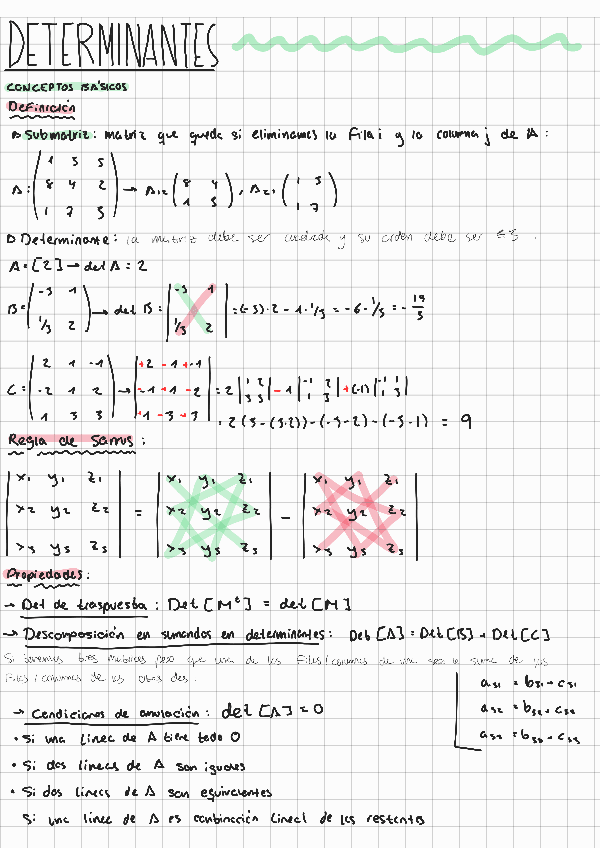 DETERMINANTES
CONCEPTOS BÁSICOS
Definición
Submatriz: matriz que queda si eliminamos la fila i y la columna j de A:
A: ( 1 3 5 ; 8 4 2 ; 1 7 3 ) → A₁₂ = ( 8 4 ; 1 3 ), A₂₁ ( 1 3 ; 1 7 )
Determinante: la matriz debe ser cuadrada y su orden debe ser ≤ 3.
A = [2] → det A = 2
B = ( -3 1 ; 1/3 2 ) → det B = | -3 1 ; 1/3 2 | = (-3)·2 - 1·1/3 = -6 - 1/3 = - 19/3
C = ( 2 1 -1 ; -2 1 2 ; 1 3 3 ) → | +2 -1 +-1 ; -1 +1 -2 ; +1 -3 +3 | = 2 | 1 2 ; 3 3 | - 1 | -1 2 ; 1 3 | + (-1) | -1 1 ; 1 3 |
= 2(3 - (3·2)) - (-3-2) - (-3-1) = 9
Regla de Sarrus:
| x₁ y₁ z₁ ; x₂ y₂ z₂ ; x₃ y₃ z₃ | = | x₁ y₁ z₁ ; x₂ y₂ z₂ ; x₃ y₃ z₃ | - | x₁ y₁ z₁ ; x₂ y₂ z₂ ; x₃ y₃ z₃ |
Propiedades:
→ Det de traspuesta: Det [Mᵗ] = det [M]
→ Descomposición en sumandos en determinantes: Det [A] = Det [B] + Det [C]
Si tenemos tres matrices pero que una de las filas/columnas de una sea la suma de las
filas/columnas de las otras dos.
a₃₁ = b₃₁ + c₃₁
a₃₂ = b₃₂ + c₃₂
a₃₂ = b₃₃ + c₃₃
→ Condiciones de anulación: det [A] = 0
• Si una linea de A tiene todo 0
• Si dos lineas de A son iguales
• Si dos lineas de A son equivalentes
Si una linea de A es combinación lineal de las restantes